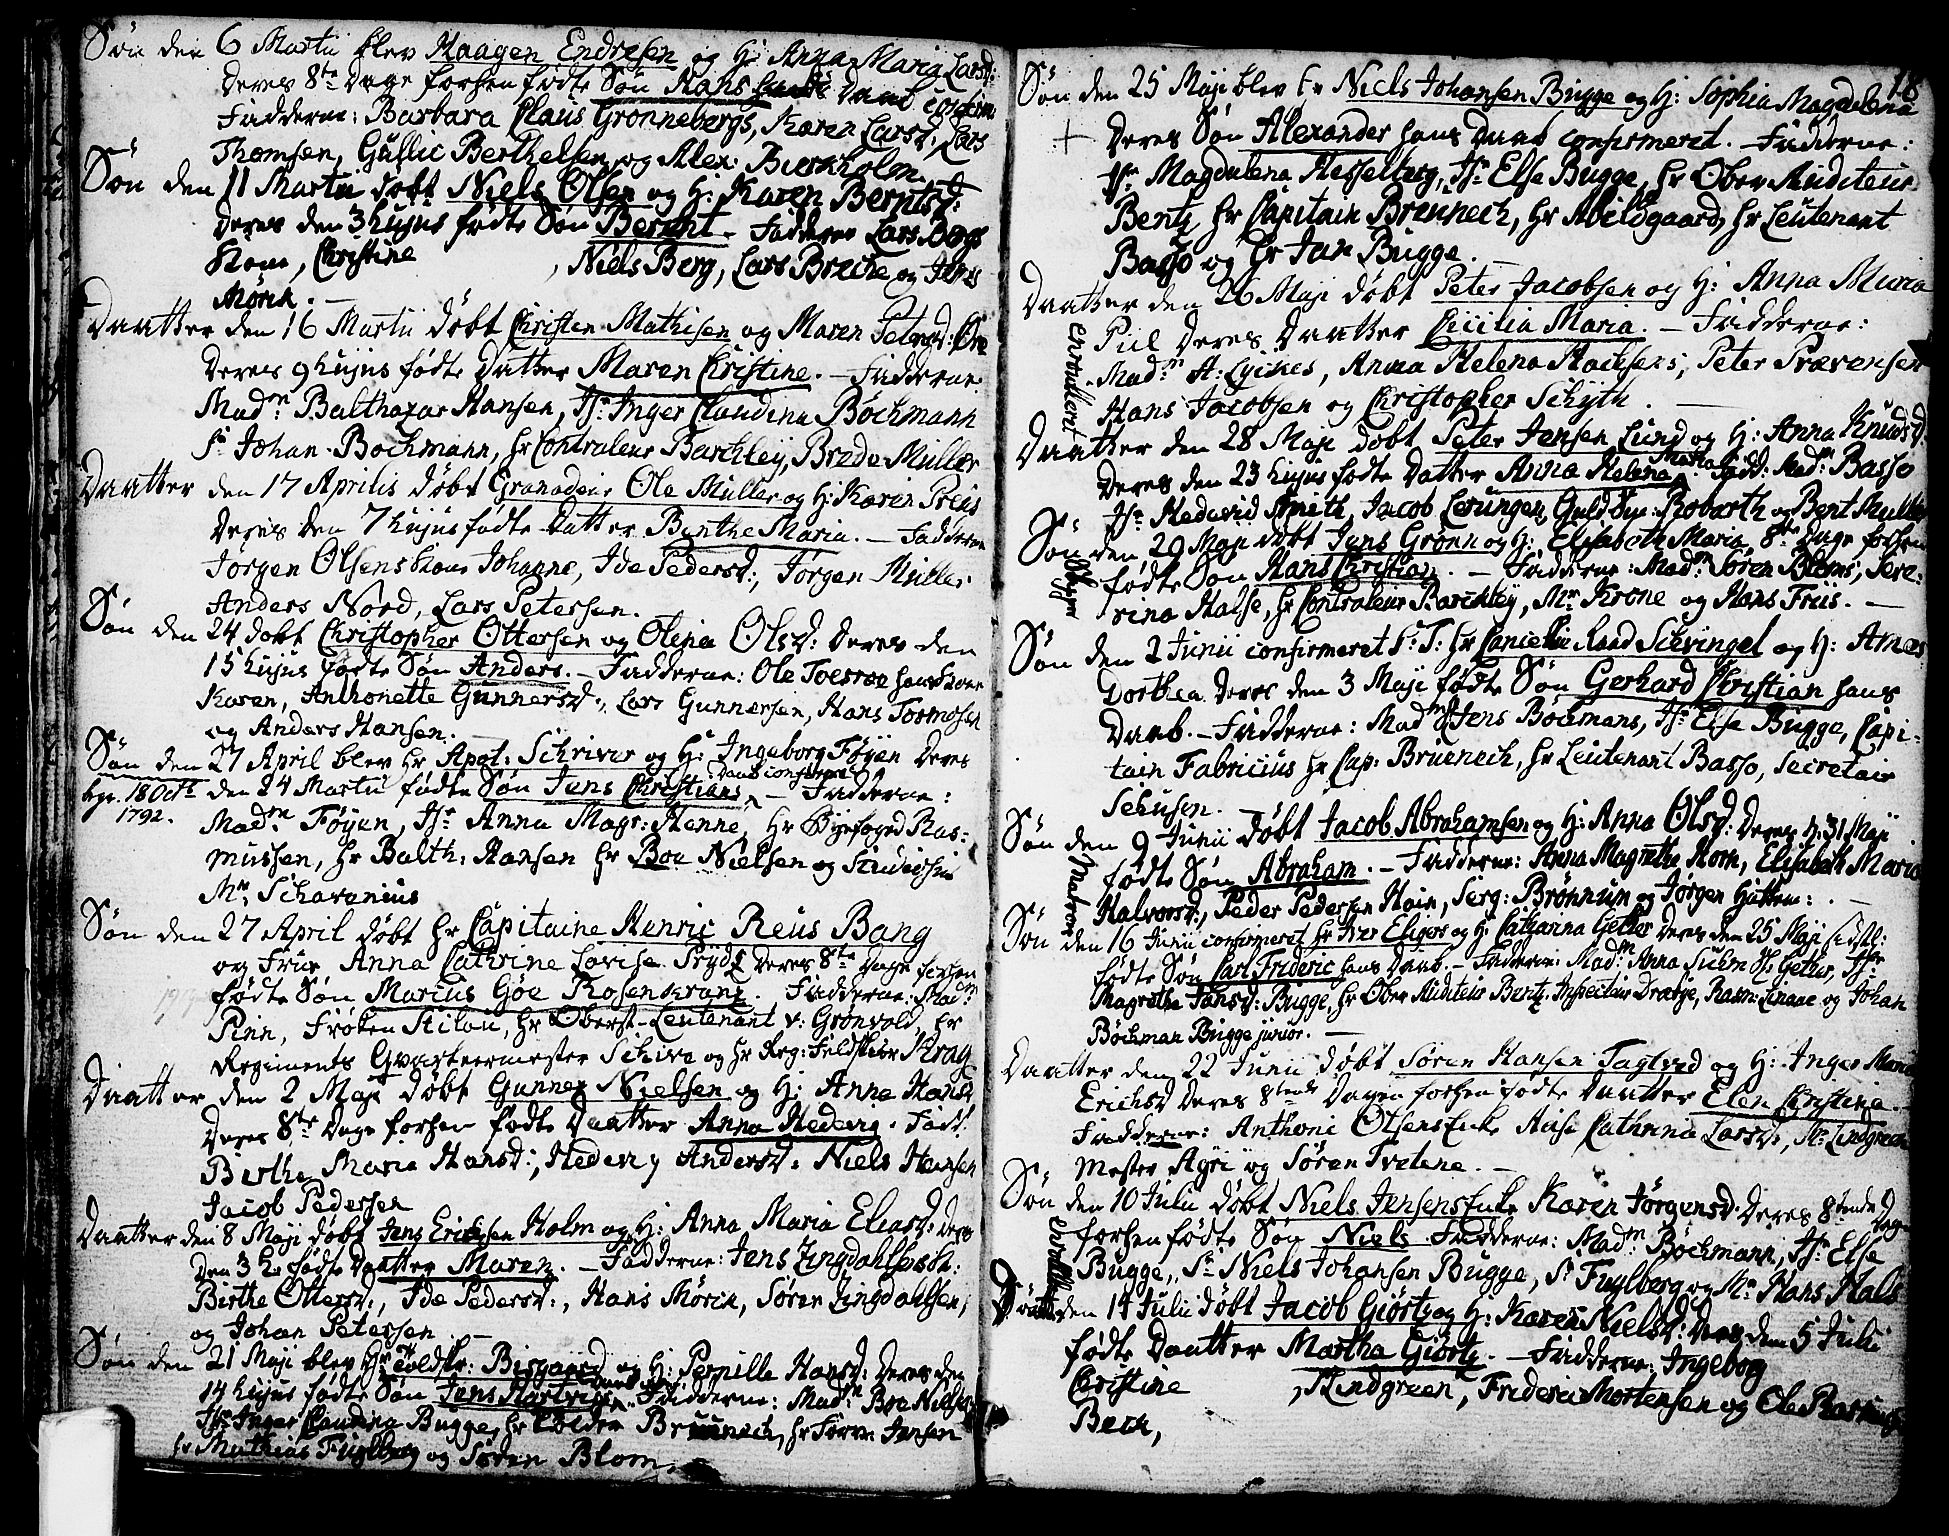 Søn den 6 Martii blev Haagen Endresen og H: Anna Maria Larsd:
Deres 8te Dage forhen fødte Søn Hans hans Daab confirm
Fadderne: Barbara Claus Grønnebergs, Karen Larsd:, Lars
Thomsen, Gullic Berthelsen og Alex: Burkholm.
Søn den 11 Martii døbt Niels Olsen og H: Karen Berntsd:
Deres den 3 hujus fødte Søn Berent. – Fadderne Lars Bergs
Kone, Christine , Niels Berg, Lars Breche og Jens
Mørch. –
Daatter den 16 Martii døbt Christen Mathisen og Maren Petersd:
Deres 9 hujus fødte Datter Maren Christine. – Fadderne
Madm Balthazar Hansen, Jfr Inger Claudina Bøckmann
Sr Johan Bockmann, hr Controleur Barchley, Brede Müller
Daatter den 17 Aprilis døbt Granadeur Ole Müller og H: Karen Preus
Deres den 7 hujus fødte Datter Berthe Maria. – Fadderne
Jørgen Olsens Kone Johanne, Ide Pedersd:, Jørgen Müller
Anders Nord, Lars Petersen.
Søn den 24 døbt Christopher Ottersen og Olena Olsd: Deres den
15 hujus fødte Søn Anders. – Fadderne: Ole Toesroe hans Kone
Karen, Anthonette Gunnersd:, Lars Gunnersen, Hans Tormosen
og Anders Hansen. –
Søn den 27 April blev hr Apot: Schriver og H: Ingeborg Føyen Deres
bgr. 18 Octb. den 24 Martii fødte Søn Jens Christians Daab confirm: – Fadderne:
1792. Madm Føyen, Jfr Anna Magr: Henne, Hr Byefoged Ras-
mussen, hr Balth: Hansen hr Boe Nielsen og Studiosus
Mr Schavenius
Søn den 27 April døbt hr Capitaine Henric Reus Bang
og Frue Anna Cathrine Lovise Prydz Deres 8te Dage forhen
fødte Søn Marius Gøe Rosenkranz. Fadderne: Madm
Pinn, Frøken Stilou, hr Oberst-Leutenant v: Grønvold, hr
Regiments Qvarteermester Schive og hr Reg: Feldskier Krag
Daatter den 2 Maji døbt Gunner Nielsen og H: Anne Hansd
Deres 8te Dage forhen fødte Daatter Anna Hedevig. Fadd:
Berthe Maria Hansd:, Hedevig Andersd: Niels Hansen
Jacob Pedersen
Daatter den 8 Maji døbt Jens Erichsen Holm og H: Anna Maria Eleasd: Deres
den 3 h: fødte Daatter Maren. – Fadderne: Jens Lingdahls K:
Birthe Ottersd:, Ide Pedersd:, Hans Mørch, Søren Lingdahlsen,
og Johan Petersen. –
Søn den 21 Maji blev Hr Toldskr: Bisgaard og H: Pernille Hansd: Deres den
14 hujus fødte Søn Jens Hartvigs Daab. Fadderne: Madm Boe Nielsen
Jfr Inger Claudina Bugge, hr Tolder Bruenech, hr Sørren Jensen
hr Mathias Fuglberg og Søren Blom.
18
Søn den 25 Maji blev hr Niels Johansen Bugge og H: Sophia Magdelena
+ Deres Søn Alexander hans Daab confirmeret. – Fadderne:
Jfr Magdalena Hesselberg, Jfr Else Bugge, hr Ober Auditeur
Bentz, hr Capitain Brennech, hr Abildgaard, hr Leutenant
Basso og hr Jan Bugge. –
Daatter den 26 Maji døbt Peter Jacobsen og H: Anna Maria
Piil Deres Daatter Cicilia Maria. – Fadderne:
Madm A: Lyckes, Anna Helena Hachsens, Peter Prævensen
Hans Jacobsen og Christopher Schyth.
Enroulleret
Daatter den 28 Maji døbt Peter Jensen Lund og H: Anna Knudsd.
Deres den 23 hujus fødte Datter Anna Helena Maria Fadd: Madm Basso
Jfr Hedevid Smith, Jacob Lerungen, Guld Sm: Robarth og Bent Müller
Søn den 29 Maji døbt Jens Grønn og H: Elisabeth Maria 8te Dage forhen
fødte Søn Hans Christian. – Fadderne: Madm Søren Bloms, Seve-
rina Halse, hr Controleur Barchley, Mr Krone og Hans Friis. –
Søn den 2 Junii confirmeret S: T: hr Cancellie Raad Schvingel og H: Agnes
Dorthea Deres den 3 Maji fødte Søn Gerhard Christian hans
Daab. – Fadderne: Madm Jens Bøckmans, Jfr Else Bugge, Capi-
tain Fabricius hr Cap: Bruenech, hr Leutenant Basso, Secretair
Schusen.
Søn den 9 Junii døbt Jacob Abrahamsen og H: Anna Olsd: Deres d: 31 Maji
fødte Søn Abraham. – Fadderne: Anna Magrethe Horn, Elisabeth Maria
Halvorsd:, Peder Pedersen Hain, Serg: Brønnum og Jørgen Hattem: . –
Matros
Søn den 16 Junii confirmeret hr Iver Eligers og H: Catharina Getter Deres den 25 Maji sidstl:
fødte Søn Carl Frideric hans Daab. – Fadderne: Madm Anna Suhm Jfr Getter, Jfr
Magretha Jansd: Bugge, hr Ober Auditeur Bentz, Inspecteur Dræbye, Rasm: Linaae og Johan
Bøchman Bugge junior. –
Daatter den 22 Junii døbt Søren Hansen Tagtved og H: Inger Maria
Erichsd Deres 8tende Dagen forhen fødte Daatter Elen Christina. –
Fadderne: Anthoni Olsens Enke Aase Cathrina Larsd:, Mr Lindgreen
Mester Ayri og Søren Tvetene. –
Søn den 10 Julii døbt Niels Jensens Enke Karen Jørgensd: Deres 8tende Dage
forhen fødte Søn Niels Fadderne: Madm Bøchmann, Jfr Else
Bugge, Sr Niels Johansen Bugge, Sr Fuglberg og Mr Hans Hals
Daatter den 14 Julii døbt Jacob Giørtz og H: Karen Nielsd: Deres den 5 Julii
fødte Daatter Martha Giørtz. – Fadderne: Ingeborg
Christine , Lindgreen, Frideric Mortensen og Ole
Bech,